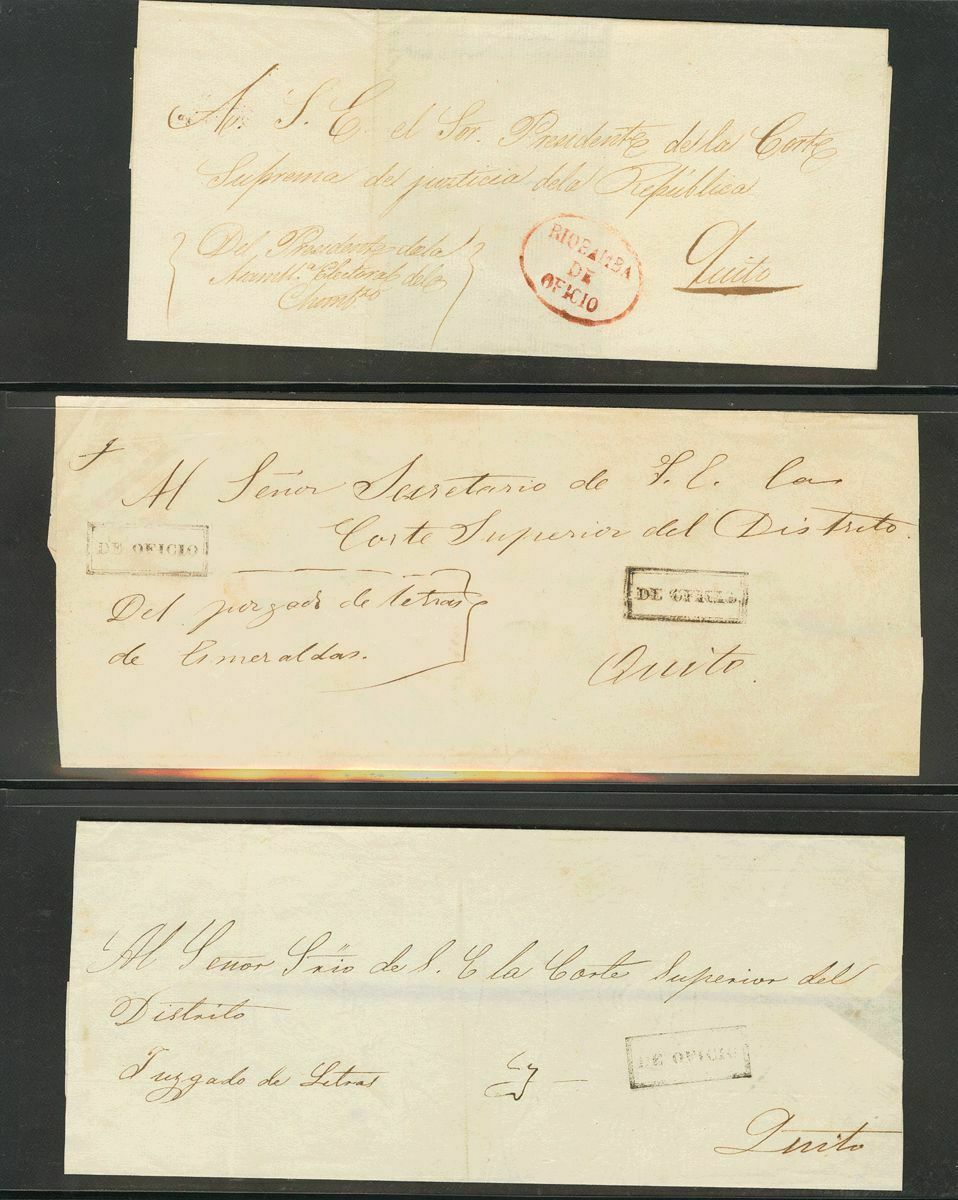 A S. E. el Sor. Presidente dela Corte
Suprema de justicia dela República
Del Presidente dela
Asambl.ª Electoral del
Chimb.zo
RIOBAMBA
DE
OFICIO
Quito
Al Señor Secretario de S. E. la
Corte Superior del Distrito.
DE OFICIO
Del juzgado de letras
de Esmeraldas.
DE OFICIO.
Quito.
Al Senor Srio de S. E la Corte Superior del
Distrito
Juzgado de Letras
DE OFICIO
Quito